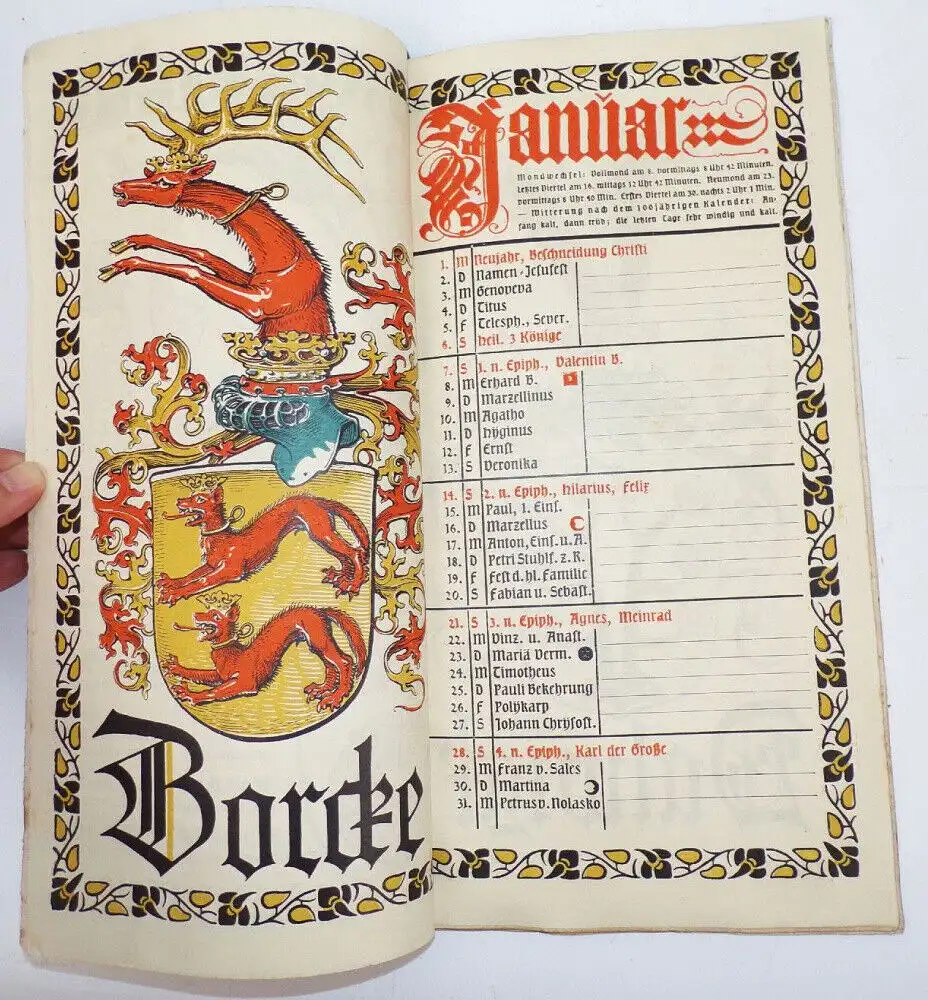 Borcke
Januar
Mondwechsel: Vollmond am 8. vormittags 8 Uhr 42 Minuten.
Letztes Viertel am 16. mittags 12 Uhr 42 Minuten. Neumond am 23.
vormittags 8 Uhr 40 Min. Erstes Viertel am 30. nachts 2 Uhr 1 Min.
— Witterung nach dem 100jährigen Kalender: An-
fang kalt, dann trüb; die letzten Tage sehr windig und kalt.
1. M Neujahr, Beschneidung Christi
2. D Namen-Jesufest
3. M Genoveva
4. D Titus
5. F Telesph., Sever.
6. S Heil. 3 Könige
7. S 1. n. Epiph., Valentin B.
8. M Erhard B.
9. D Marzellinus
10. M Agatho
11. D Hyginus
12. F Ernst
13. S Veronika
14. S 2. n. Epiph., Hilarius, Felix
15. M Paul, 1. Eins.
16. D Marzellus
17. M Anton, Eins. u. A.
18. D Petri Stuhlf. z. R.
19. F Fest d. hl. Familie
20. S Fabian u. Sebast.
21. S 3. n. Epiph., Agnes, Meinrad
22. M Vinz. u. Anast.
23. D Mariä Verm.
24. M Timotheus
25. D Pauli Bekehrung
26. F Polykarp
27. S Johann Chrysost.
28. S 4. n. Epiph., Karl der Große
29. M Franz v. Sales
30. D Martina
31. M Petrus v. Nolasko